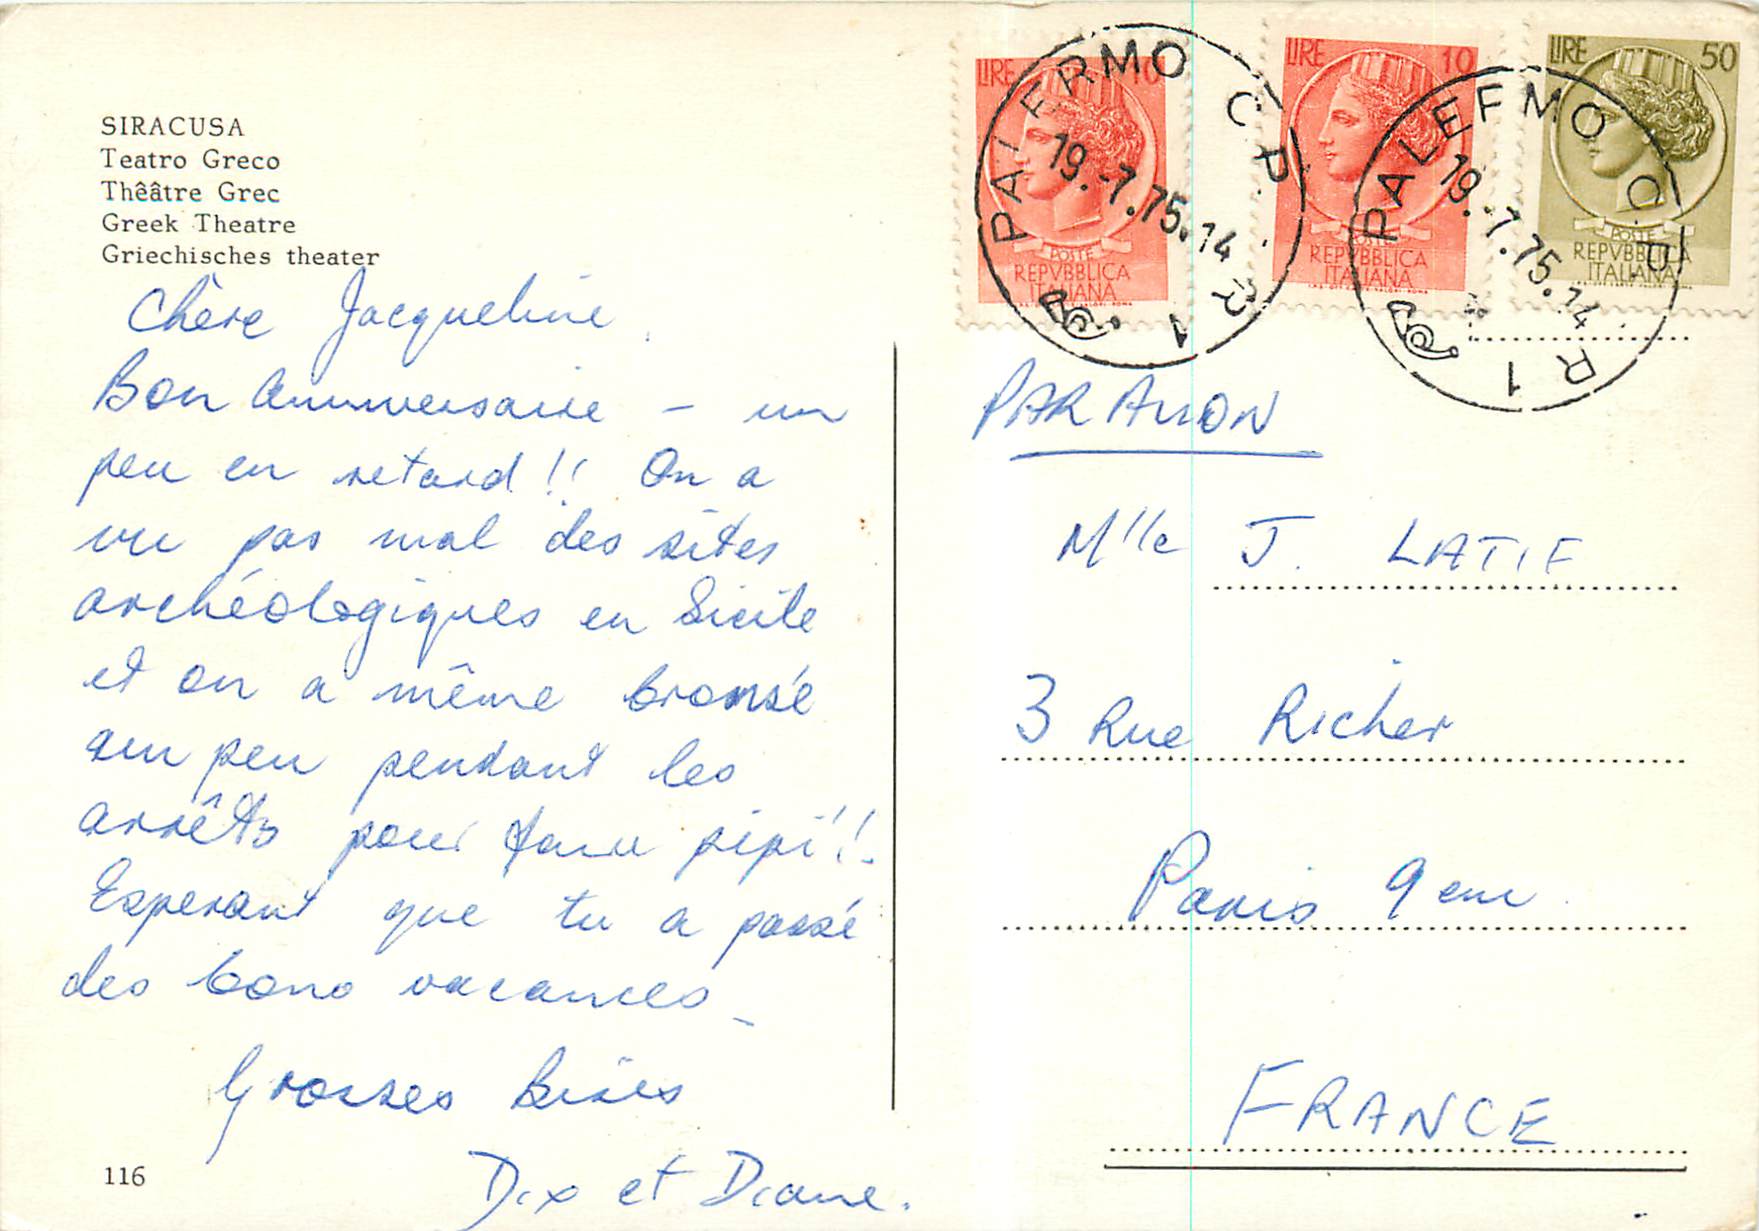 SIRACUSA
Teatro Greco
Thêâtre Grec
Greek Theatre
Griechisches theater
Chère Jacqueline
Bon anniversaire - un
peu en retard !! On a
vu pas mal des sites
archéologiques en Sicile
et on a même bronsé
un peu pendant les
arrêts pour faire pipi!!
Esperant que tu a passé
des bons vacances
Grosses Bises
Dix et Diane.
116
LIRE 10
POSTE
REPVBBLICA
ITALIANA
LIRE 10
POSTE
REPVBBLICA
ITALIANA
LIRE 50
POSTE
REPVBBLICA
ITALIANA
PALERMO C.P. R 1
19.-7.75.14
PALERMO C.P. R 1
19.-7.75.14
PAR AVION
Mlle J. LATIF
3 Rue Richer
Paris 9eme
FRANCE